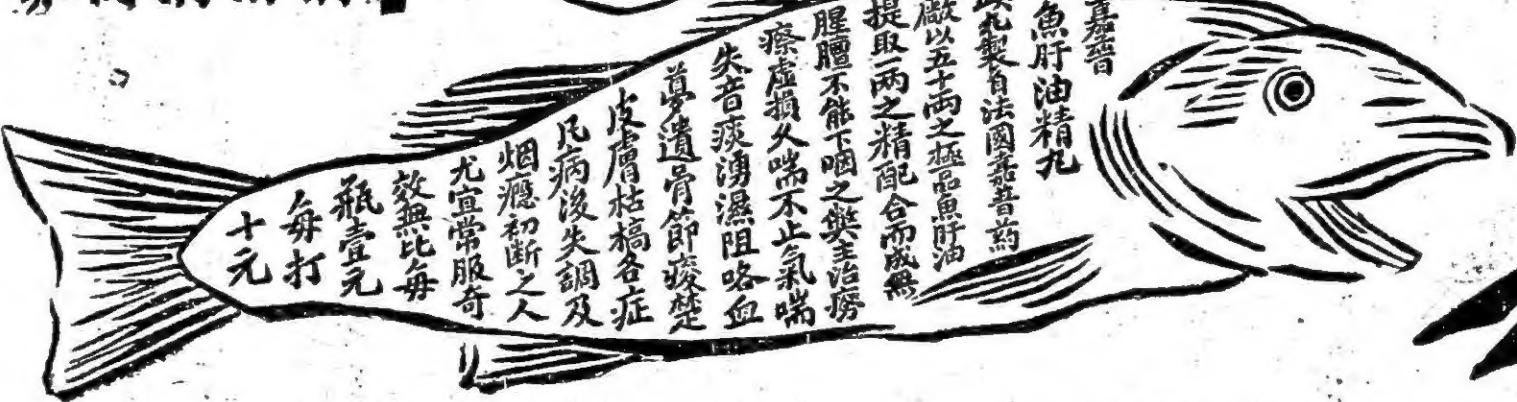 嘉普
魚肝油精丸
此丸製自法國嘉普葯
廠以五十兩之極品魚肝油
提取一两之精配合而成無
腥膻不能下咽之獘主治癆
瘵虛損久喘不止氣喘
失音痰湧濕阻咯血
夢遺骨節痠楚
皮膚枯槁各症
凡病後失調及
烟癮初断之人
尤宜常服奇
效無比每
瓶壹元
每打
十元